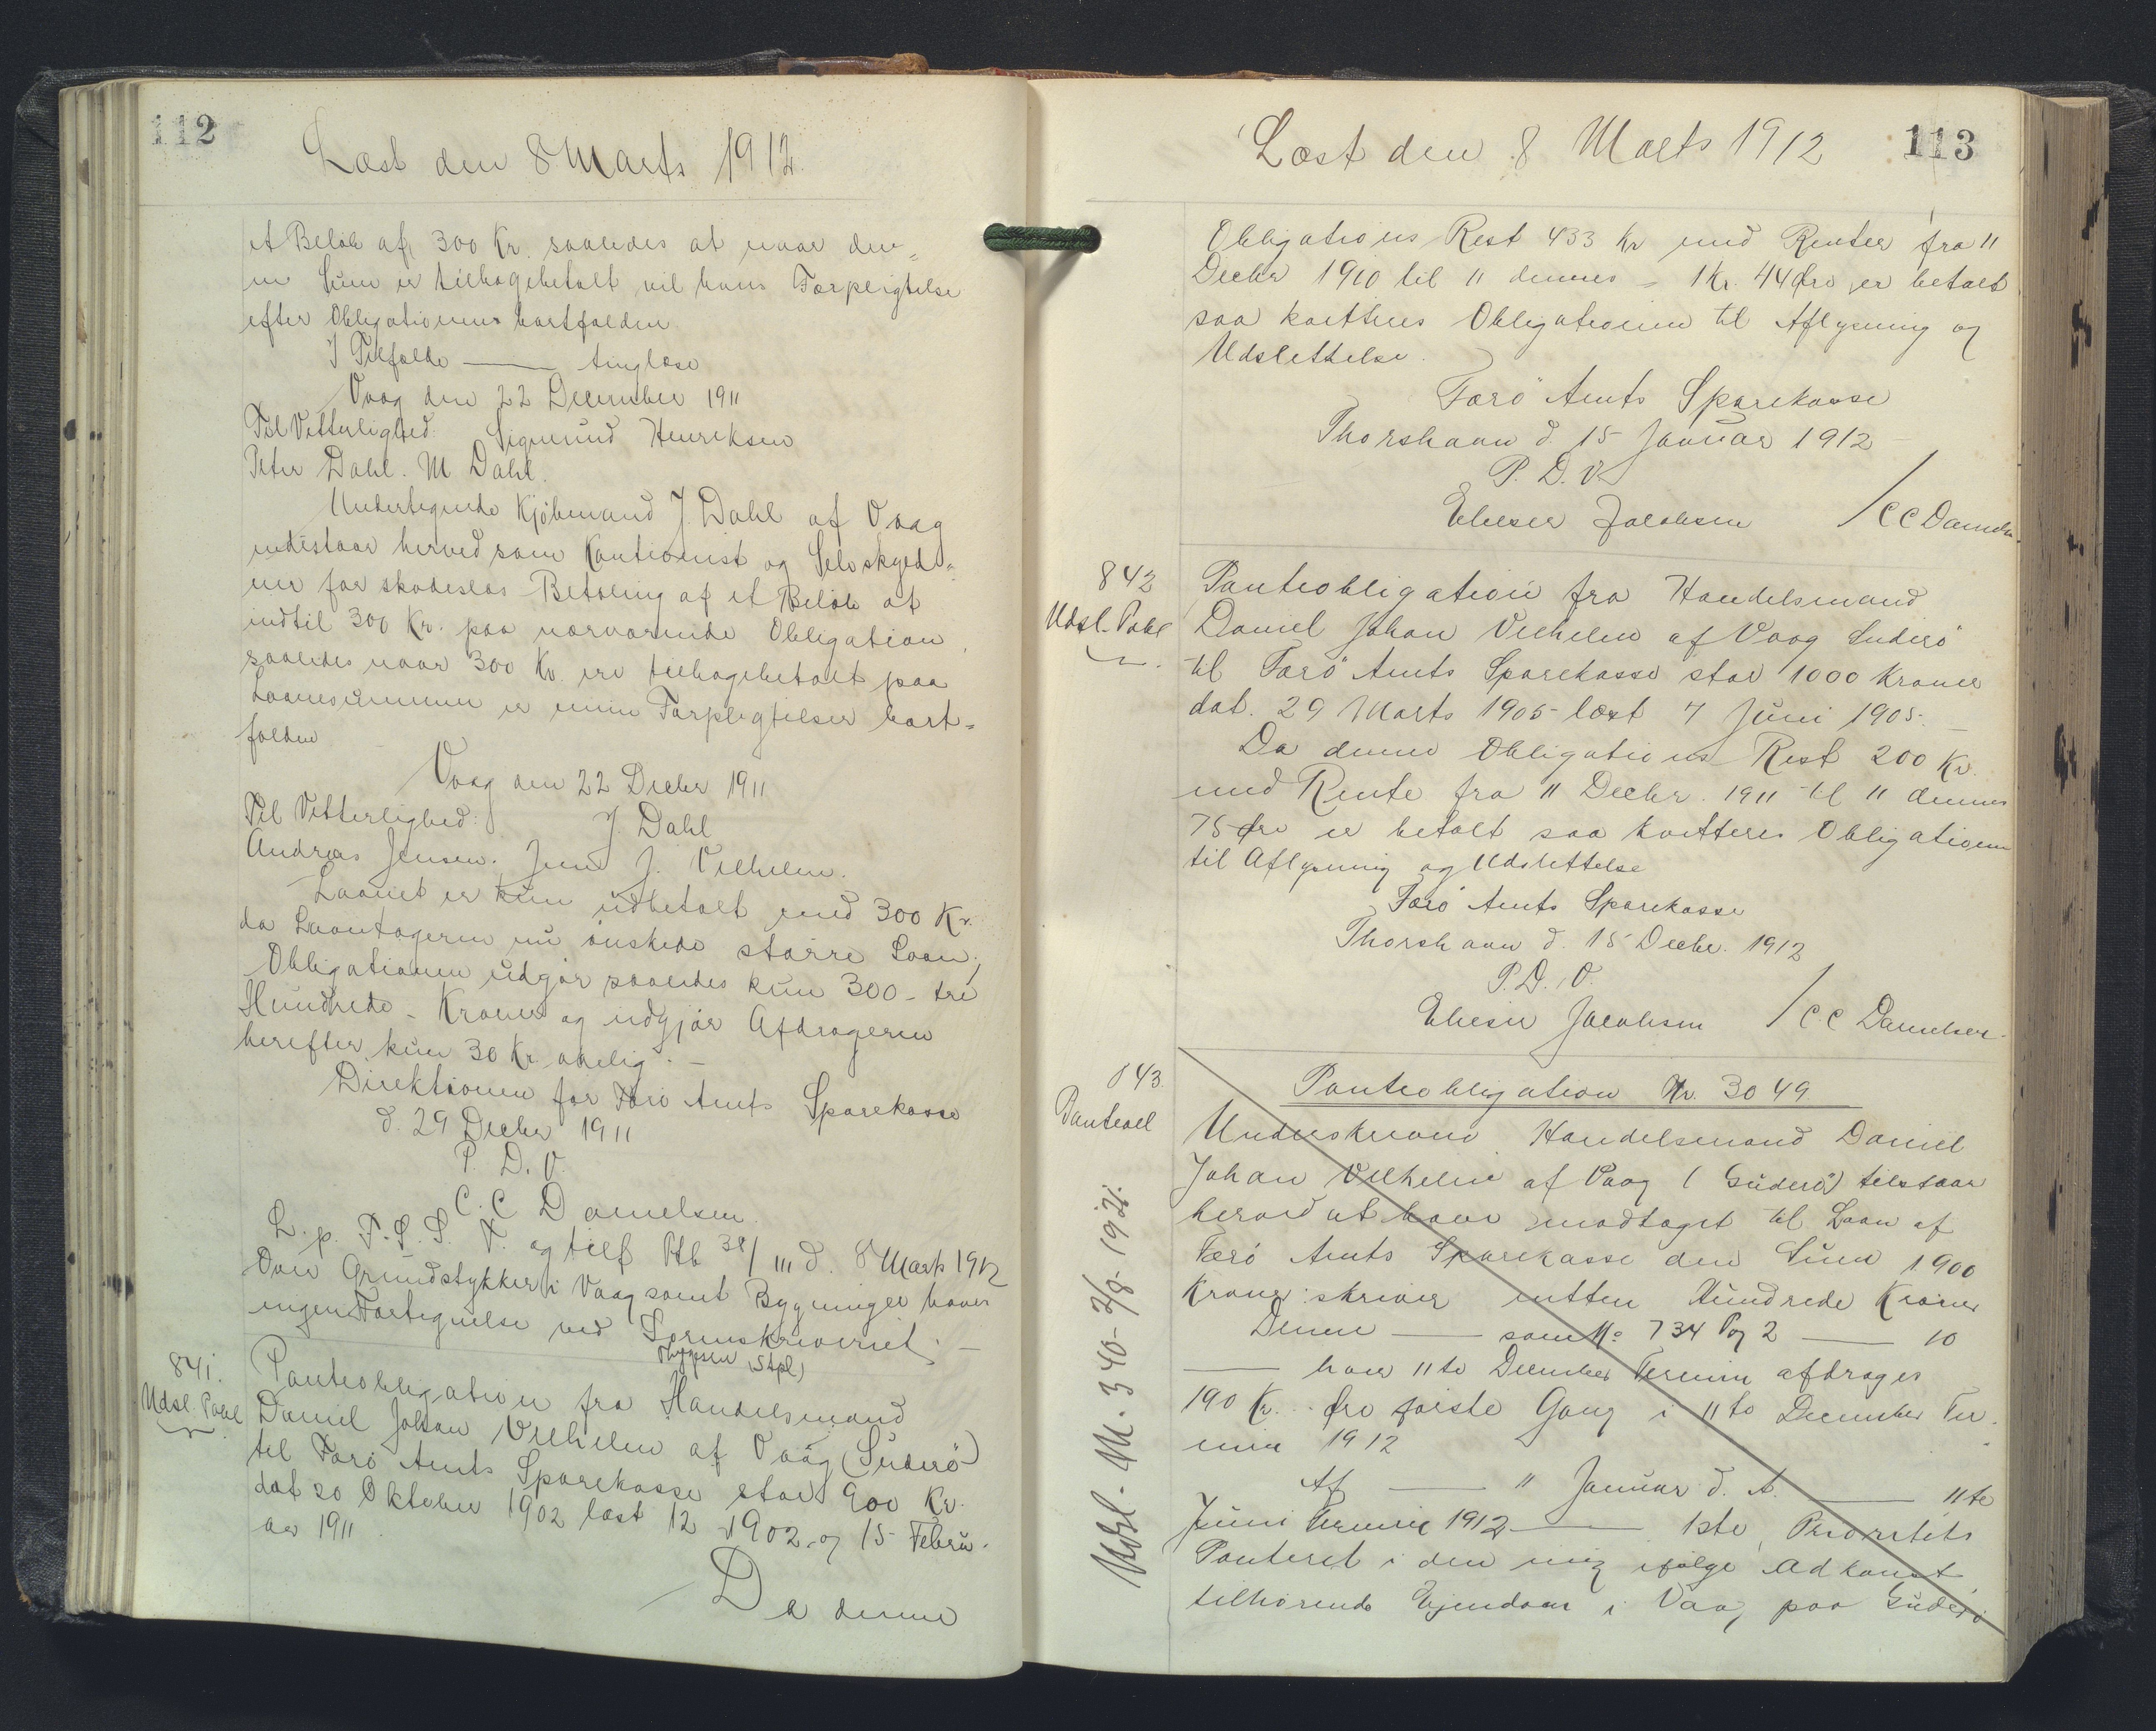 112
Læst den 8 Marts 1912.
et Beløb af 300 Kr. saaledes at naar den-
ne Sum er tilbagebetalt vil hans Forpligtelse
efter Obligationen bortfalden
I Tilfælde — tinglæse
Vaag den 22 December 1911
Til Vitterlighed: Sigmund Henriksen
Peter Dahl. M Dahl.
Undertegnede Kjöbmand J. Dahl af Vaag
indestaar herved som Kautionist og Selvskyld-
ner for skadeslos Betaling af et Beløb af
indtil 300 Kr. paa nærværende Obligation,
saaledes naar 300 Kr. ere tilbagebetalt paa
Laanesummen er min Forpligtelser bort-
falden
Vaag den 22 Decbr 1911
Til Vitterlighed: J. Dahl
Andreas Jensen. Jens J. Vilhelm.
Laanet er kun udbetalt med 300 Kr.
da Laantageren nu önskede större Laan;
Obligationen udgör saaledes kun 300 - tre
Hundrede - Kroner og udgjör Afdragerne
herefter kun 30 Kr. aarlig. -
Direktionen for Færö Amts Sparekasse
d. 29 Decbr 1911
P. D. V.
C. C Danielsen
L. p. F. S. S. T. og tilf Ptb 38/111 d. 8 Marts 1912
Over Grundstykker i Vaag samt Bygninger haves
ingen Fortegnelse ved Sorenskriveriet. -
(Stpl)
841.
Udsl. Pabl
Panteobligation fra Handelsmand
Daniel Johan Vilhelm af Vaag (Suderö)
til Færö Amts Sparekasse stor 900 Kr.
dat 20 Oktober 1902 læst 12 1902 og 15 Febru-
ar 1911.
Da denne
Læst den 8 Marts 1912
113
Obligations Rest 433 Kr med Renter fra 11
Decbr 1910 til 11 dennes - 1 Kr. 44 Øre er betalt
saa kvitteres Obligationen til Aflysning og
Udslettelse.
Færö Amts Sparekasse
Thorshavn d. 15 Januar 1912
P. D. V.
Elieser Jacobsen / C C Danielsen
842
Udsl. Pabl
Panteobligation fra Handelsmand
Daniel Johan Vilhelm af Vaag Suderö
til Færö Amts Sparekasse stor 1000 Kroner
dat. 29 Marts 1905 læst 7 Juni 1905.
Da denne Obligations Rest 200 Kr.
med Rente fra 11 Decbr. 1911 til 11 dennes
75 Øre er betalt saa kvitteres Obligationen
til Aflysning og Udslettelse
Færö Amts Sparekasse
Thorshavn d. 15 Decbr. 1912
P. D. V.
Elieser Jacobsen / C. C Danielsen
843.
Udsl. M. 340 - 2/8 - 1921.
Panteobligation Nr. 3049
Underskrevne Handelsmand Daniel
Johan Vilhelm af Vaag (Suderö) tilstaar
herved at have modtaget til Laan af
Færö Amts Sparekasse den Sum 1900
Kroner skriver nitten Hundrede Kroner
Denne — som No 734 Pag 2 — 10
— hver 11te December Termin afdrages
190 Kr. .. Øre förste Gang i 11te December Ter-
min 1912
Af — 11 Januar d. A. — 11te
Juni Termin 1912 — 1ste Prioritets
Panteret i den mig ifölge Adkomst
tilhörende Ejendom i Vaag paa Suderö